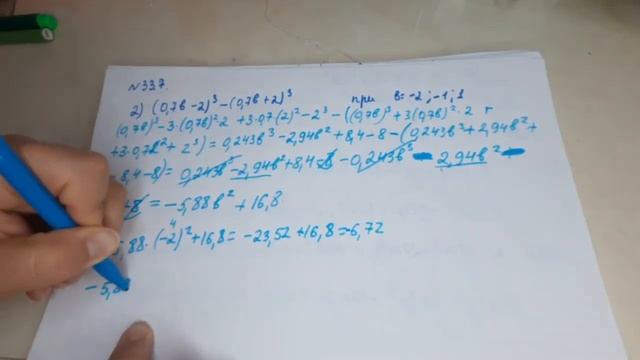 N 337.
2) (0,7в-2)³-(0,7в+2)³ при в=-2;-1;1
(0,7в)³-3·(0,7в)²·2 +3·07(2)²-2³-((0,7в)³+3(0,7в)²·2 +
+3·0,7в2²+ 2³)= 0,243в³-2,94в²+8,4-8-(0,243в³+2,94в²+
8,4-8)= 0,243в³-2,94в²+8,4-8-0,243в³-2,94в²
-8 = -5,88в²+16,8
88·(-2)²+16,8= -23,52+16,8=-6,72
4
-5,8